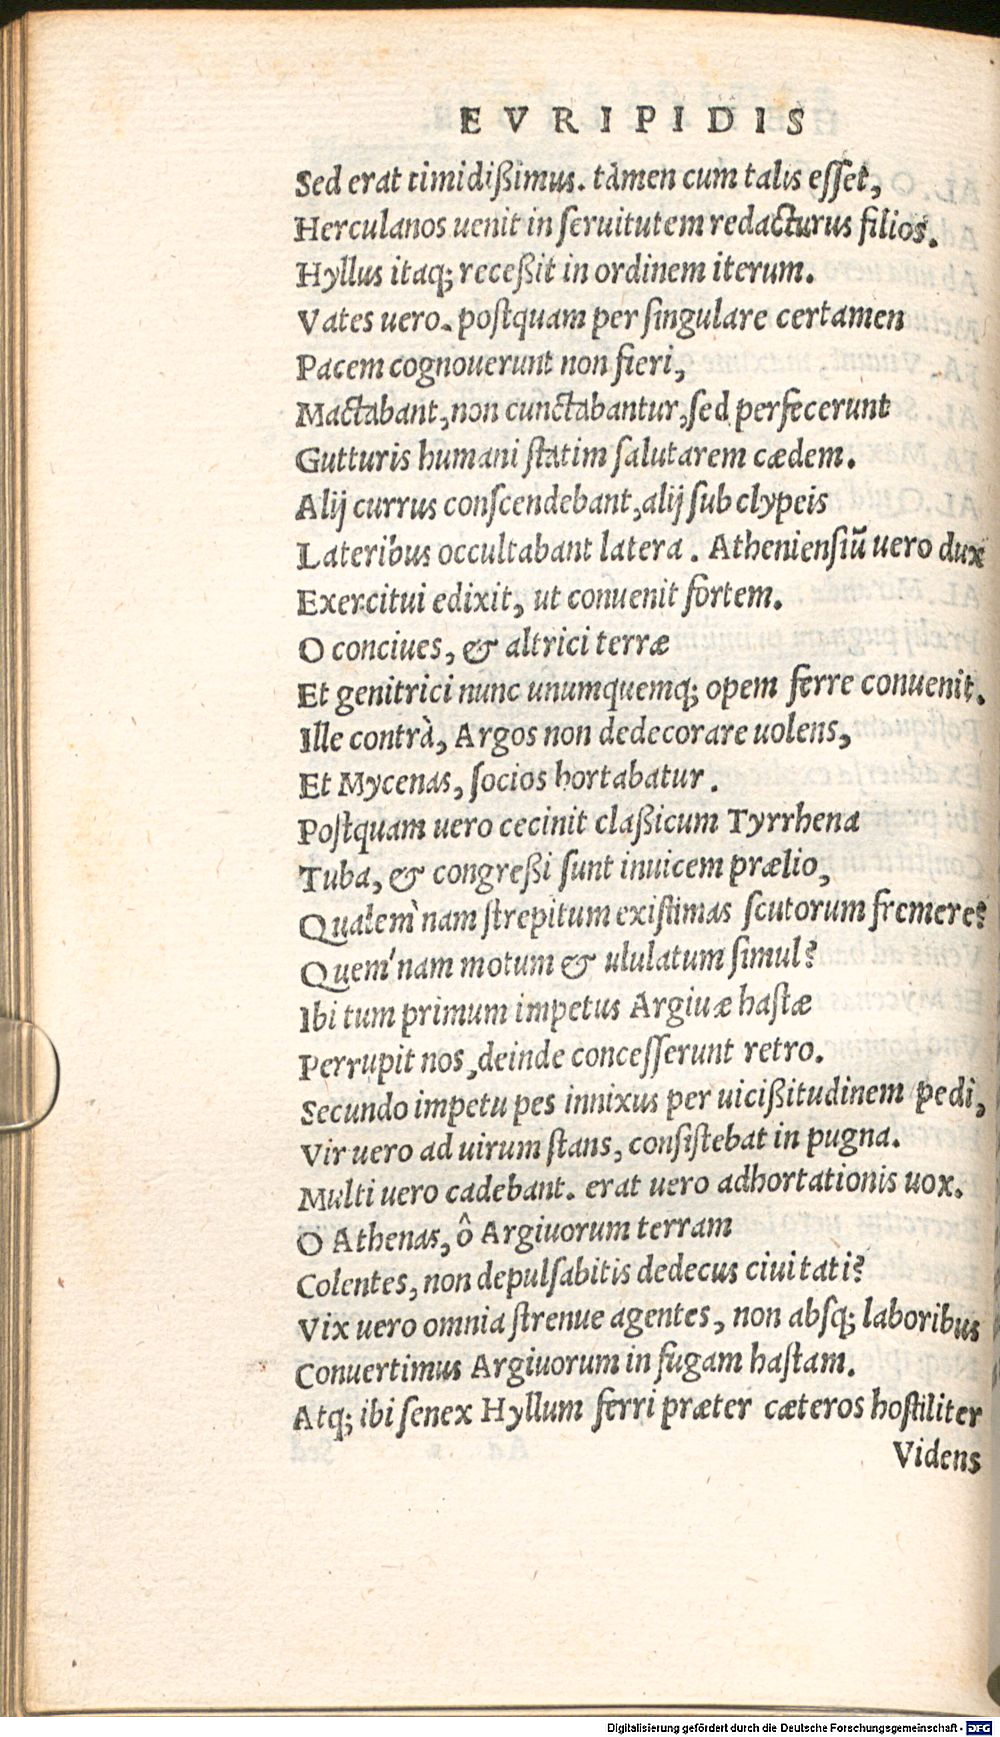 EVRIPIDIS
Sed erat timidißimus. tàmen cum talis esset,
Herculanos uenit in seruitutem redacturus filios.
Hyllus itaq; receßit in ordinem iterum.
Vates uero. postquam per singulare certamen
Pacem cognouerunt non fieri,
Mactabant, non cunctabantur, sed perfecerunt
Gutturis humani statim salutarem cædem.
Alij currus conscendebant, alij sub clypeis
Lateribus occultabant latera. Atheniensiũ uero dux
Exercitui edixit, ut conuenit fortem.
O conciues, & altrici terræ
Et genitrici nunc unumquemq; opem ferre conuenit.
Ille contrà, Argos non dedecorare uolens,
Et Mycenas, socios hortabatur.
Postquam uero cecinit claßicum Tyrrhena
Tuba, & congreßi sunt inuicem prælio,
Qualem'nam strepitum existimas scutorum fremere?
Quem'nam motum & ululatum simul?
Ibi tum primum impetus Argiuæ hastæ
Perrupit nos, deinde concesserunt retro.
Secundo impetu pes innixus per uicißitudinem pedi,
Vir uero ad uirum stans, consistebat in pugna.
Multi uero cadebant. erat uero adhortationis uox.
O Athenas, ô Argiuorum terram
Colentes, non depulsabitis dedecus ciuitati?
Vix uero omnia strenue agentes, non absq; laboribus
Conuertimus Argiuorum in fugam hastam.
Atq; ibi senex Hyllum ferri præter cæteros hostiliter
Videns
Digitalisierung gefördert durch die Deutsche Forschungsgemeinschaft - DFG